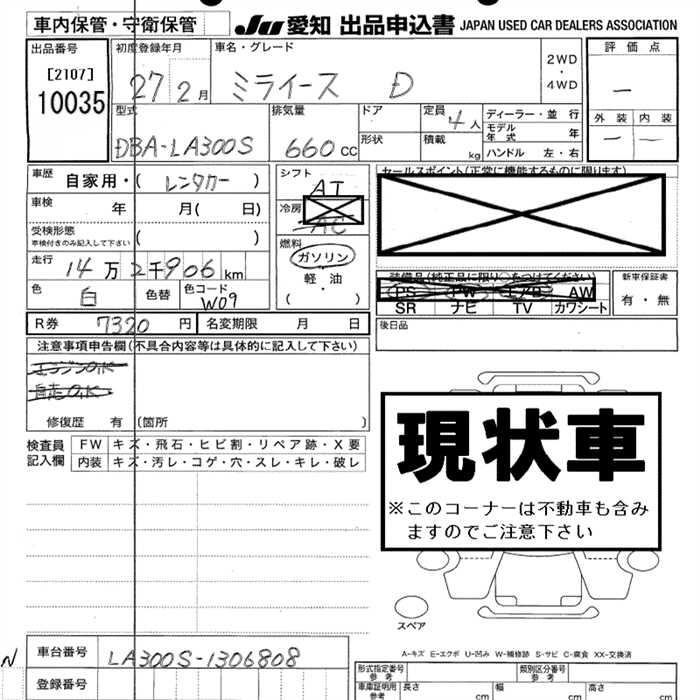 車内保管・守衛保管
JU 愛知 出品申込書 JAPAN USED CAR DEALERS ASSOCIATION
出品番号 初度登録年月 車名・グレード 評価点
[2107] 27 2月 ミライース D 2WD・4WD
10035 －
型式 排気量 ドア 定員 4人 ディーラー・並行 外装 内装
モデル年式 年 － －
DBA-LA300S 660cc 形状 積載 kg ハンドル 左・右
車歴 自家用・( レンタカー ) シフト AT セールスポイント(正常に機能するものに限ります)
車検 年 月( 日) 冷房 AC
受検形態 車検付きのみ記入して下さい ( ) 燃料 ガソリン
走行 14万2千906km 軽・油
( )
色 白 色替 色コード W09
装備品(純正品に限り○をつけてください) 新車保証書
PS PW エアB AW 有・無
SR ナビ TV カワシート
R券 7320円 名変期限 月 日 後日品
注意事項申告欄(不具合内容等は具体的に記入して下さい)
エンジンOK
自走OK
修復歴 有 (箇所 )
現状車
※このコーナーは不動車も含み
ますのでご注意下さい
検査員記入欄 FW キズ・飛石・ヒビ割・リペア跡・X要
内装 キズ・汚レ・コゲ・穴・スレ・キレ・破レ
スペア
A-キズ E-エクボ U-凹み W-補修跡 S-サビ C-腐食 XX-交換済
N 車台番号 LA300S-1306808
登録番号
形式指定番号 参考 類別区分番号 参考
車庫証明用 参考 長さ cm 幅 cm 高さ cm